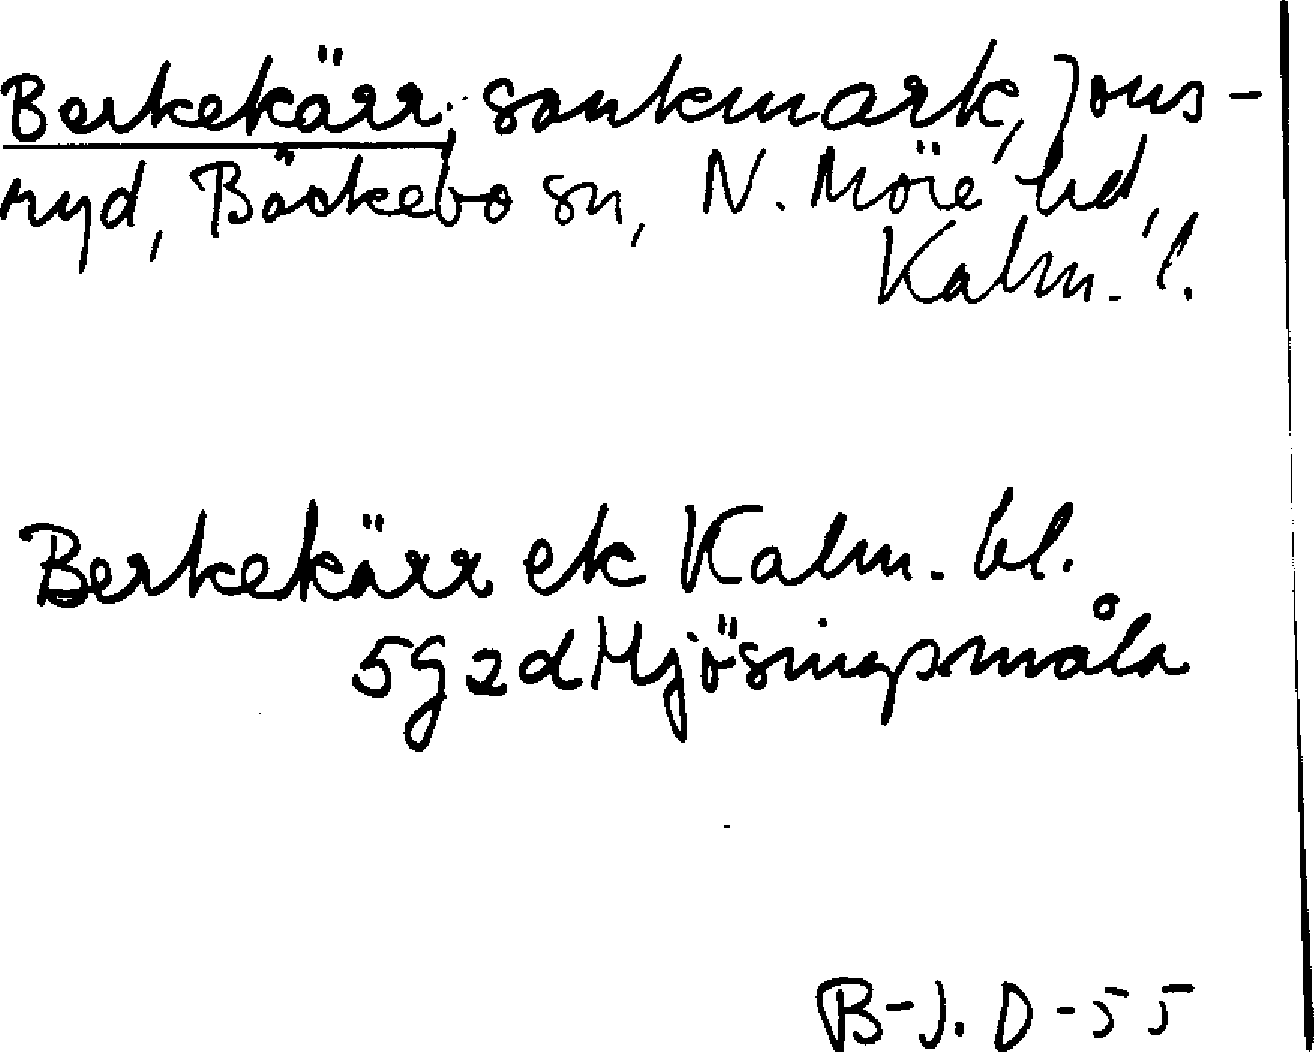 Berkekärr, sankmark, Jons-
ryd, Bäckebo sn, N. Möre hd,
Kalm. l.
Berkekärr ek Kalm. bl.
5g2d Mjösingsmåla
B-J. D-55